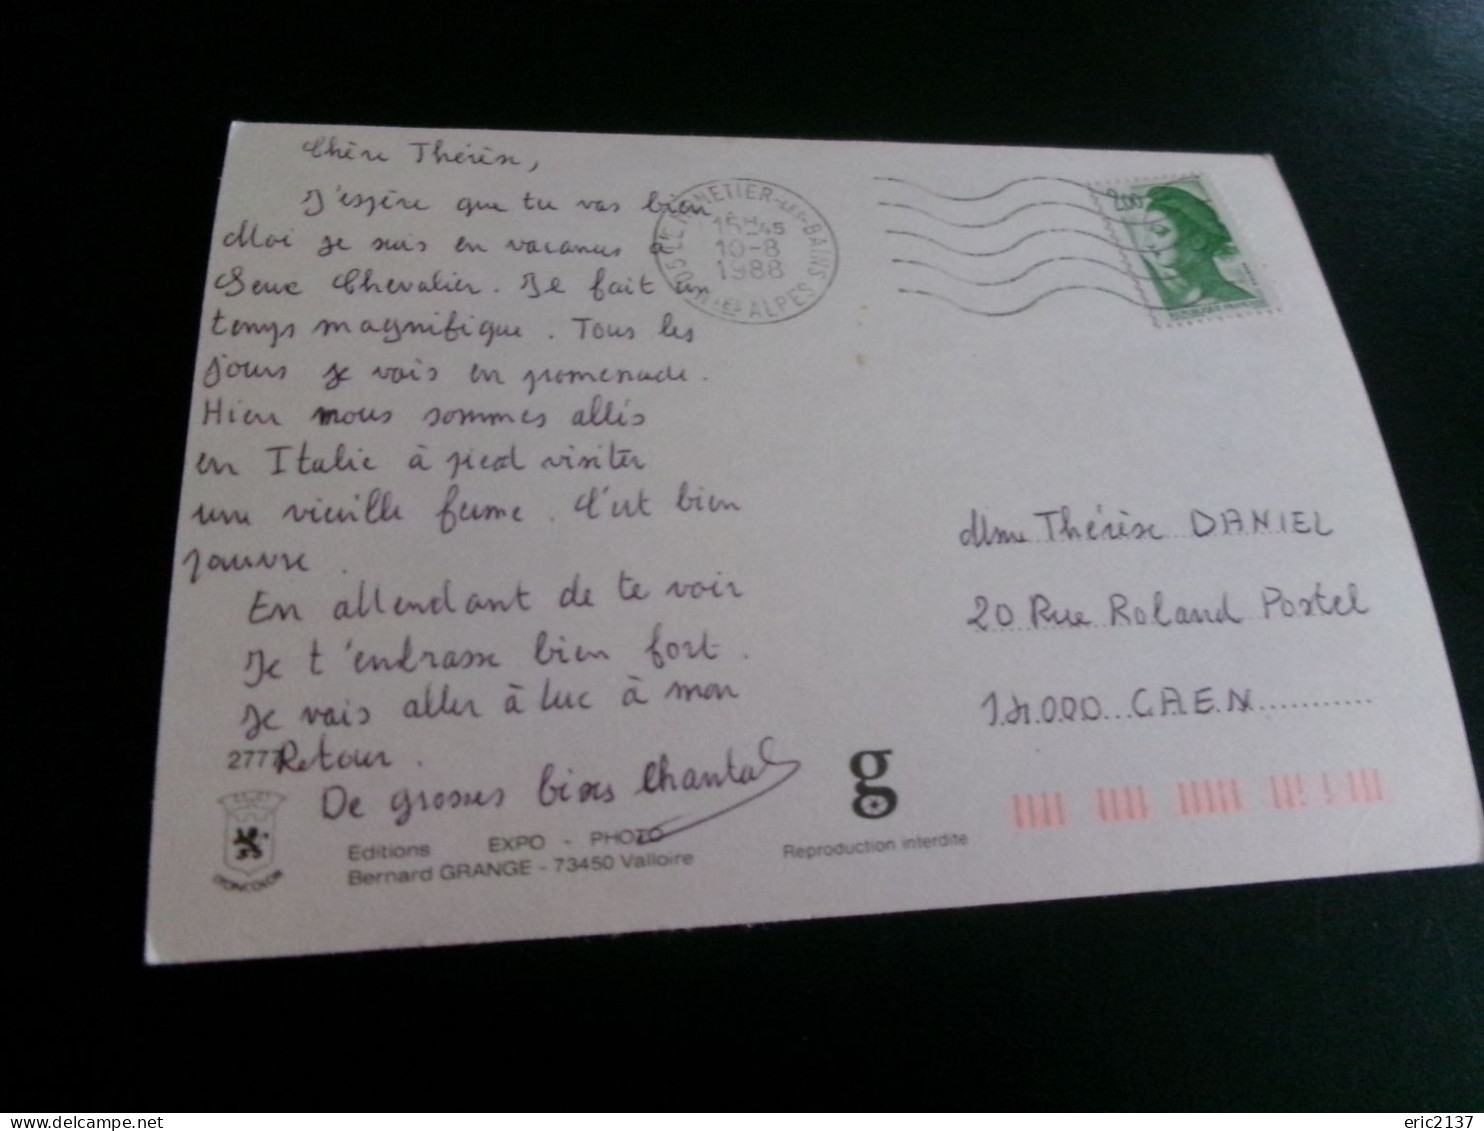 Chère Thérèse,
J'espère que tu vas bien
Moi je suis en vacances à
Serre Chevalier. Il fait un
temps magnifique. Tous les
jours je vais en promenade.
Hier nous sommes allés
en Italie à pied visiter
une vieille ferme. C'est bien
pauvre.
En attendant de te voir
Je t'embrasse bien fort.
Je vais aller à Luc à mon
Retour.
De grosses bises Chantal
05 LE MONETIER-LES-BAINS
15H45
10-8
1988
HTES ALPES
2,00
REPUBLIQUE FRANÇAISE
Mme Thérèse DANIEL
20 Rue Roland Postel
14000 CAEN
277
LYONCOLOR
Editions EXPO - PHOTO
Bernard GRANGE - 73450 Valloire
g
Reproduction interdite
www.delcampe.net
eric2137